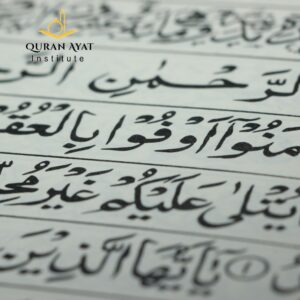 QURAN AYAT
Institute
لرَّحْمَٰنِ الرَّ
مَنُوٓا أَوْفُوا بِالْعُقُ
يُتْلَىٰ عَلَيْكُمْ غَيْرَ مُحِ
١ يَٰٓأَيُّهَا الَّذِينَ